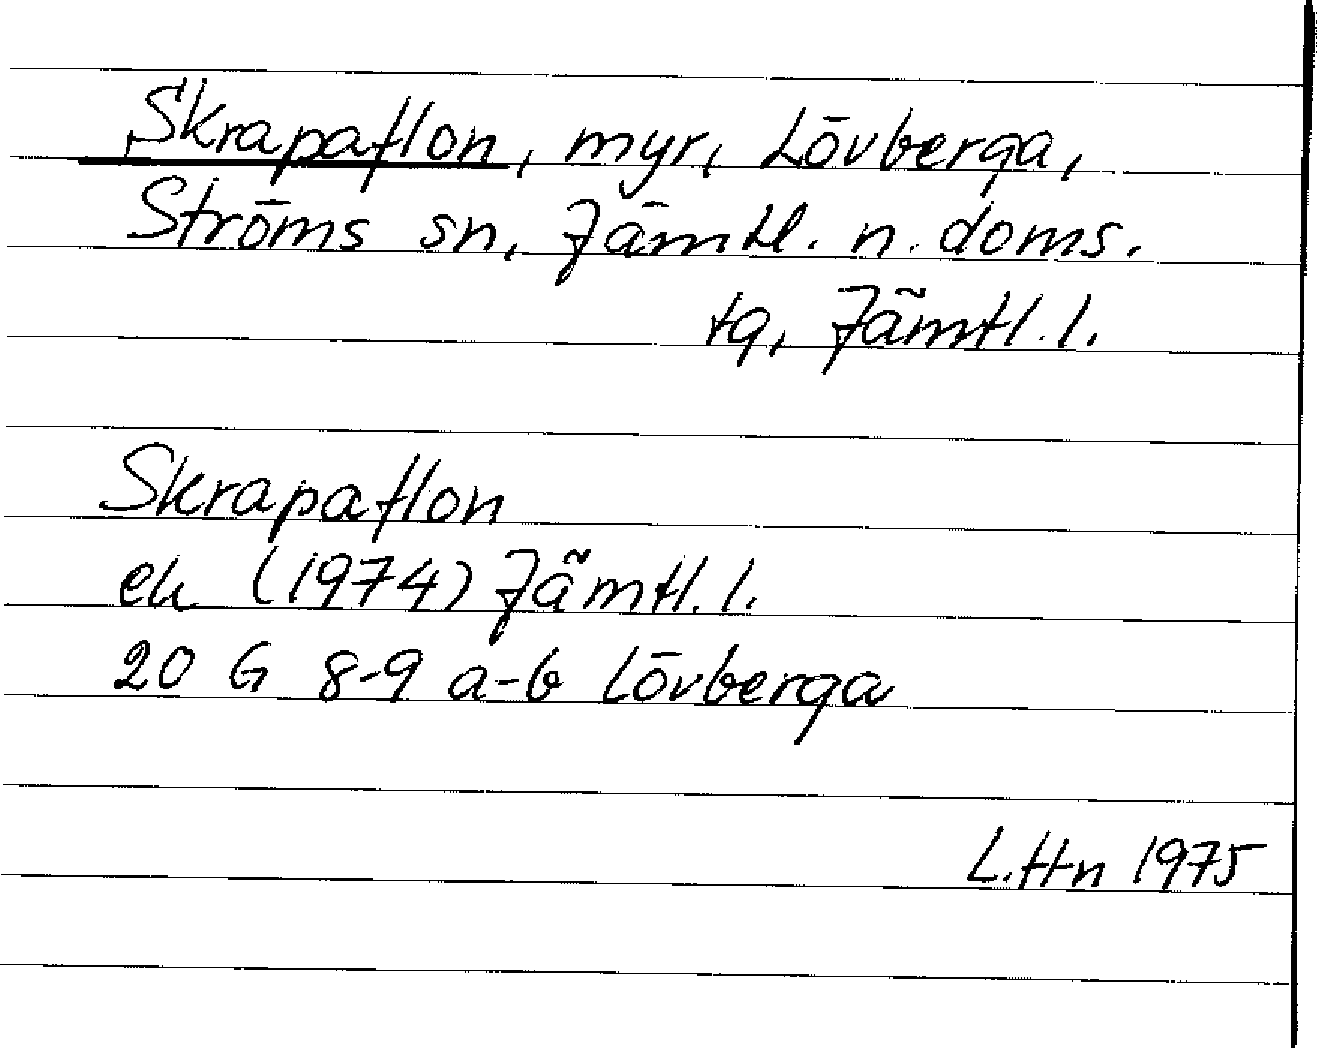 Skrapaflon, myr, Lövberga,
Ströms sn, Jämtl. n. doms.
tg, Jämtl. l.
Skrapaflon
ek (1974) Jämtl. l.
20 G 8-9 a-b Lövberga
L. Hn 1975